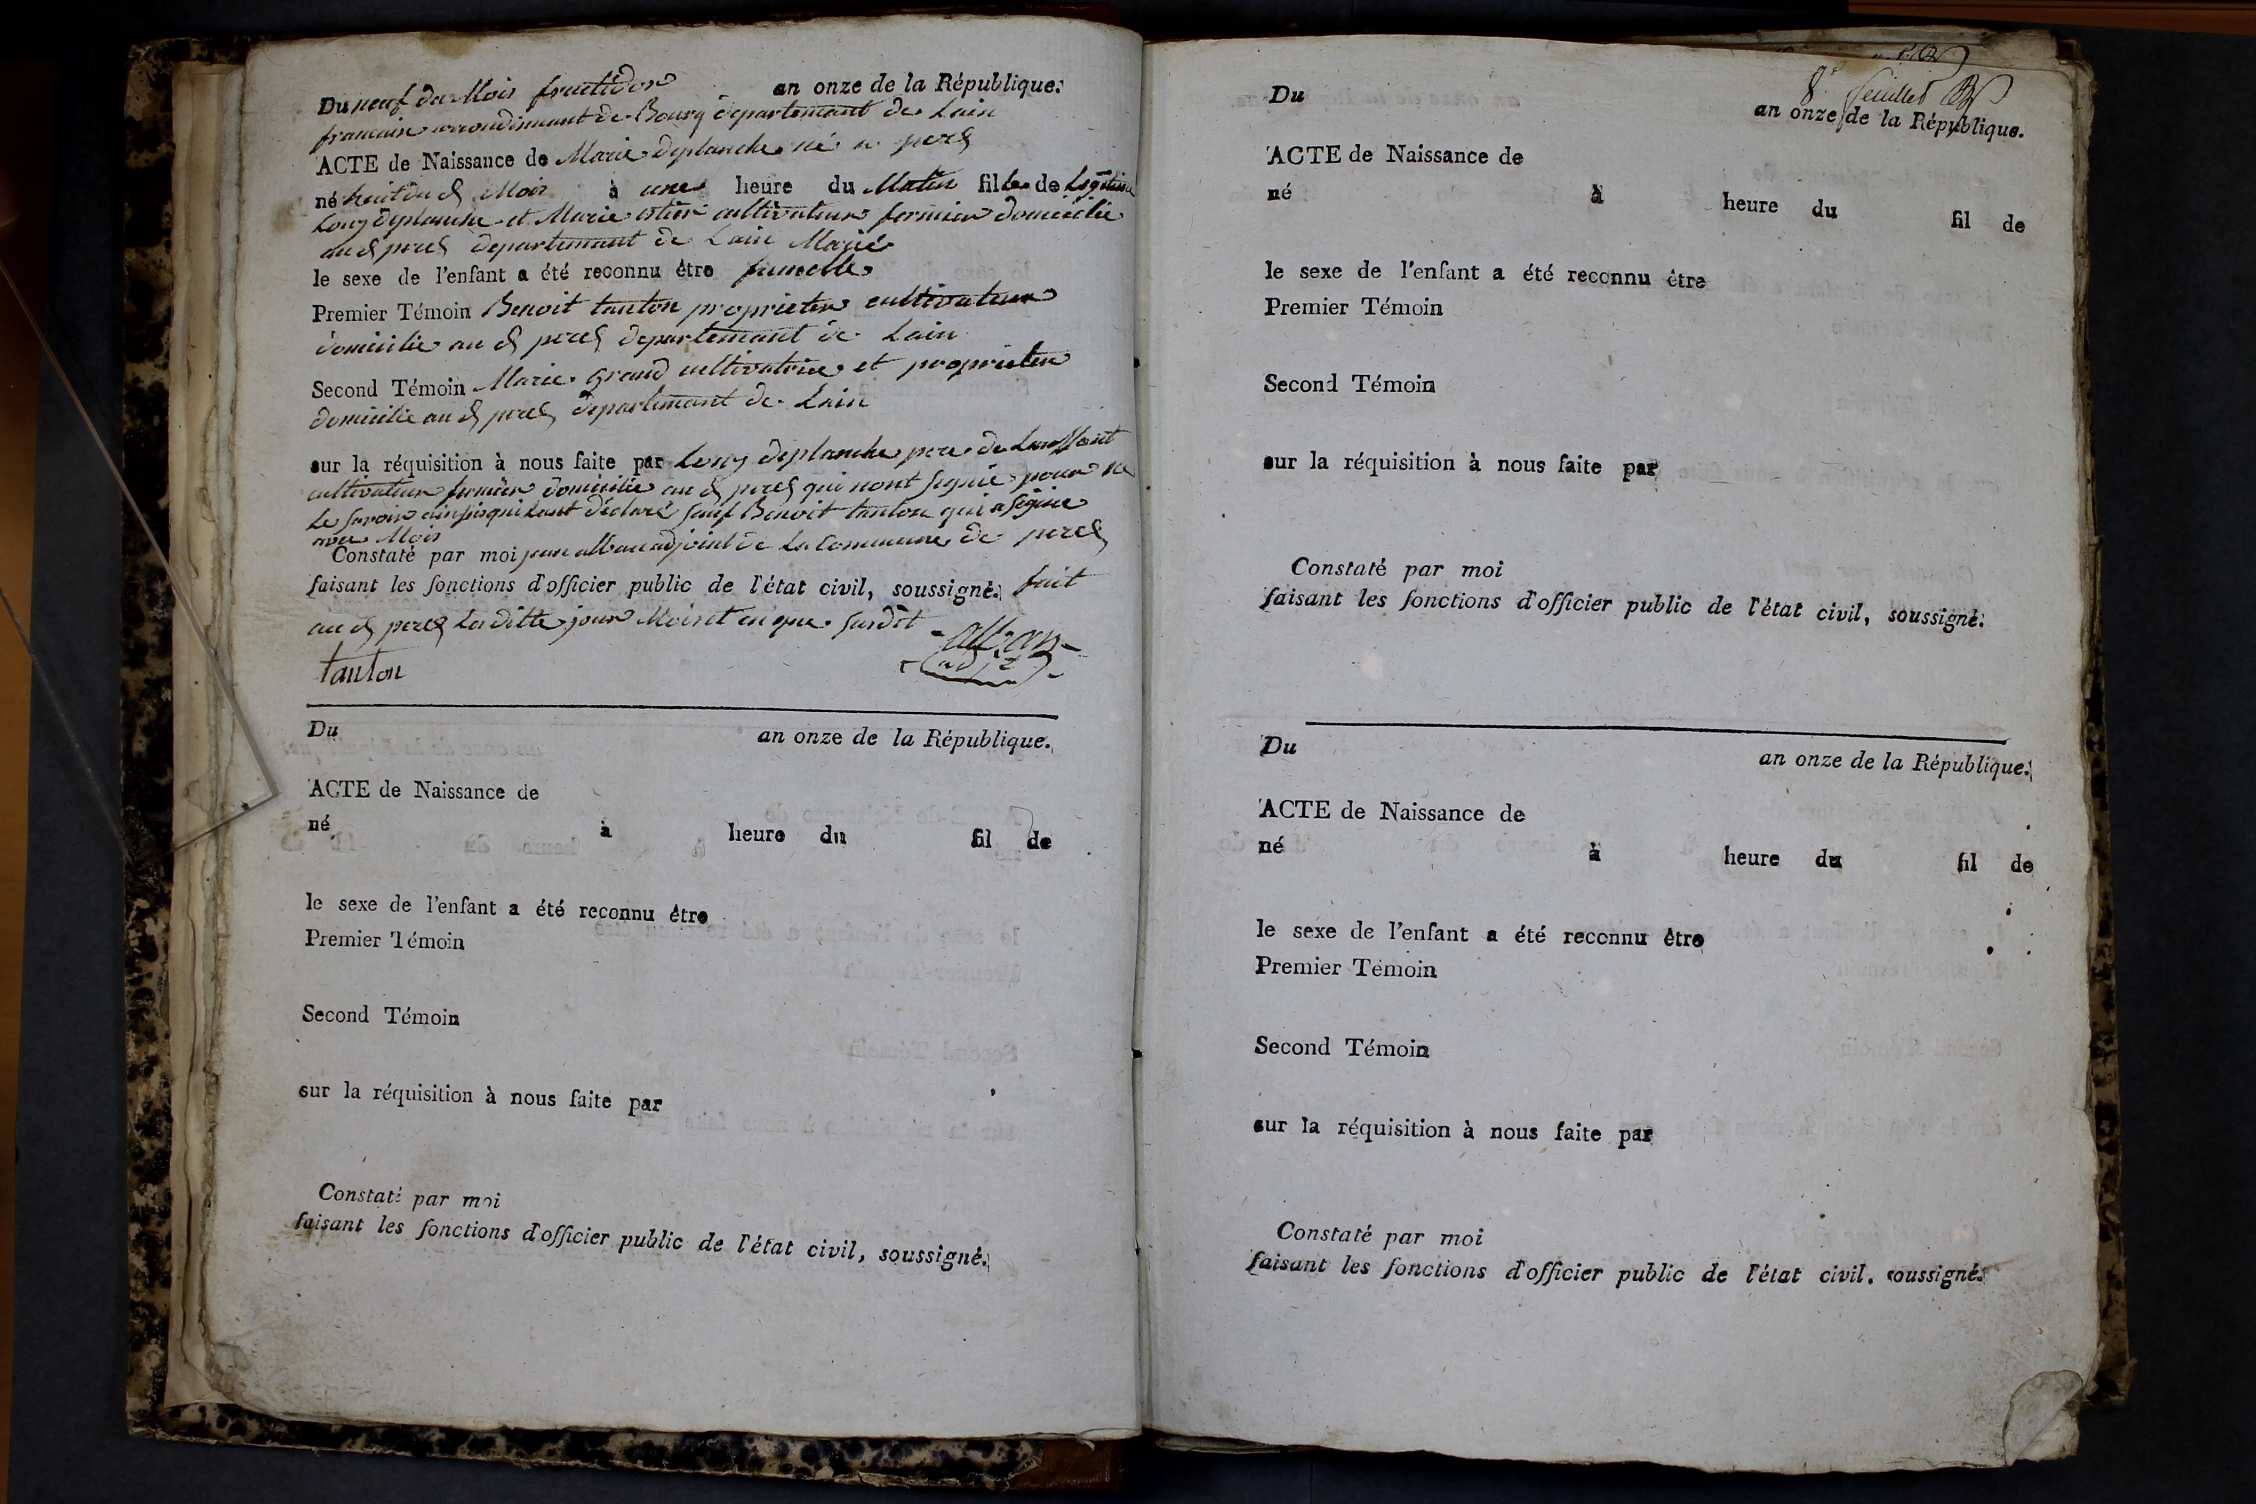 Du neuf du Mois fructidor an onze de la République.
francaise arrondissement de Bourg departemant de Lain
ACTE de Naissance de Marie deplanche né a perez
né huit du d Mois à une heure du Matin fille de Légitime
Louy deplanche et Marie cultivateur fermier domicilie
au d perez departemant de Lain Marié
le sexe de l'enfant a été reconnu être fumelle
Premier Témoin Benoit tanton proprieter cultivateur
domicilie au d perez departemant de Lain
Second Témoin Marie Grand cultivatrice et proprieter
domicilie au d perez departemant de Lain
sur la réquisition à nous faite par Louy deplanche pere de Lanffant
cultivateur fermier domicilie au d perez qui nont signié pour ne
Le savoir ainsiqui Lont déclaré sauf Benoit tanton qui a signié
avec Mois
Constaté par moi jean alban adjoint de La Commune de perez
faisant les fonctions d'officier public de l'état civil, soussigné. fait
au d perez Les ditte jour Mois et en que susdit
alban
tanton adjt
Du an onze de la République.
ACTE de Naissance de
né à heure du fil de
le sexe de l'enfant a été reconnu être
Premier Témoin
Second Témoin
sur la réquisition à nous faite par
Constaté par moi
faisant les fonctions d'officier public de l'état civil, soussigné.
8e feuillet
Du an onze de la République.
ACTE de Naissance de
né à heure du fil de
le sexe de l'enfant a été reconnu être
Premier Témoin
Second Témoin
sur la réquisition à nous faite par
Constaté par moi
faisant les fonctions d'officier public de l'état civil, soussigné.
Du an onze de la République.
ACTE de Naissance de
né à heure du fil de
le sexe de l'enfant a été reconnu être
Premier Témoin
Second Témoin
sur la réquisition à nous faite par
Constaté par moi
faisant les fonctions d'officier public de l'état civil, soussigné.